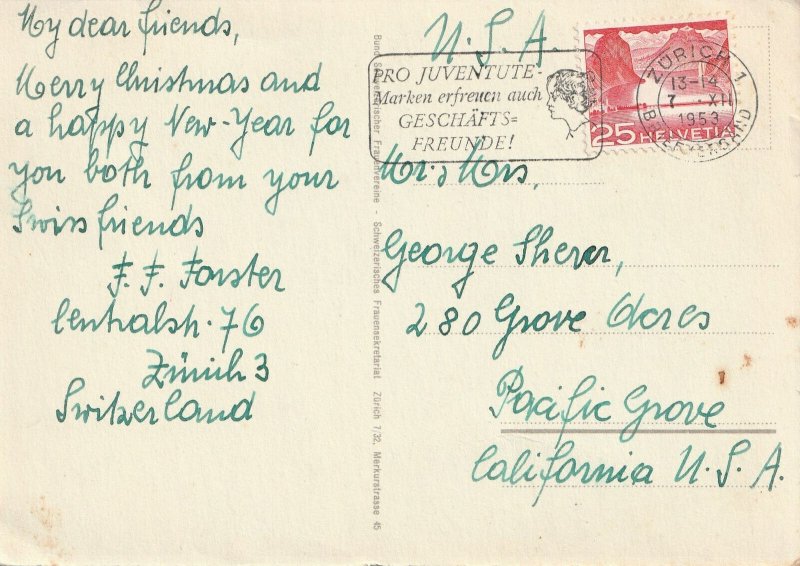 My dear friends,
Merry Christmas and
a happy New-Year for
you both from your
Swiss friends
F. F. Forster
Centralstr. 76
Zürich 3
Switzerland
Bund Schweizerischer Frauenvereine - Schweizerisches Frauensekretariat Zürich 7/32, Merkurstrasse 45
U.S.A.
PRO JUVENTUTE-
Marken erfreuen auch
GESCHÄFTS=
FREUNDE!
25 HELVETIA
ZÜRICH 1
13-14
7 XII
1953
BRIEFVERSAND
Mr. & Mrs,
George Sherer,
280 Grove Acres
Pacific Grove
California U.S.A.